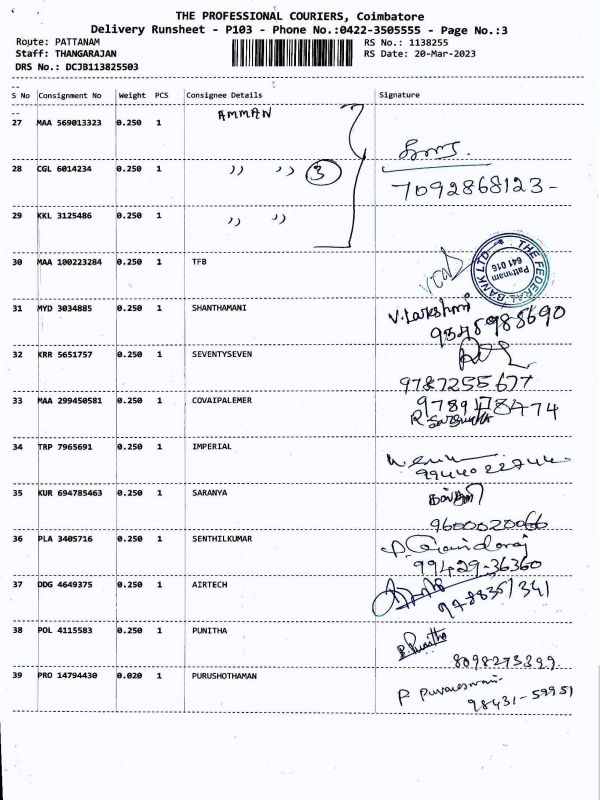 THE PROFESSIONAL COURIERS, Coimbatore
Delivery Runsheet - P103 - Phone No.:0422-3505555 - Page No.:3
Route: PATTANAM RS No.: 1138255
Staff: THANGARAJAN RS Date: 20-Mar-2023
DRS No.: DCJB113825503
S No Consignment No Weight PCS Consignee Details Signature
27 MAA 569013323 0.250 1 AMMAN
28 CGL 6014234 0.250 1 " " 3
7092868123-
29 KKL 3125486 0.250 1 " "
30 MAA 100223284 0.250 1 TFB
THE FEDERAL BANK LTD.
Pattanam
641 016
31 MYD 3034885 0.250 1 SHANTHAMANI V. Lakshmi
9345988690
32 KRR 5651757 0.250 1 SEVENTYSEVEN
9787255677
33 MAA 299450581 0.250 1 COVAIPALEMER 9789478474
34 TRP 7965691 0.250 1 IMPERIAL
9944022744
35 KUR 694785463 0.250 1 SARANYA
9600020066
36 PLA 3405716 0.250 1 SENTHILKUMAR
99429-36360
37 DDG 4649375 0.250 1 AIRTECH
9788351341
38 POL 4115583 0.250 1 PUNITHA P. Punitha
8098273399
39 PRO 14794430 0.020 1 PURUSHOTHAMAN P Puvaneswari
98431-59951